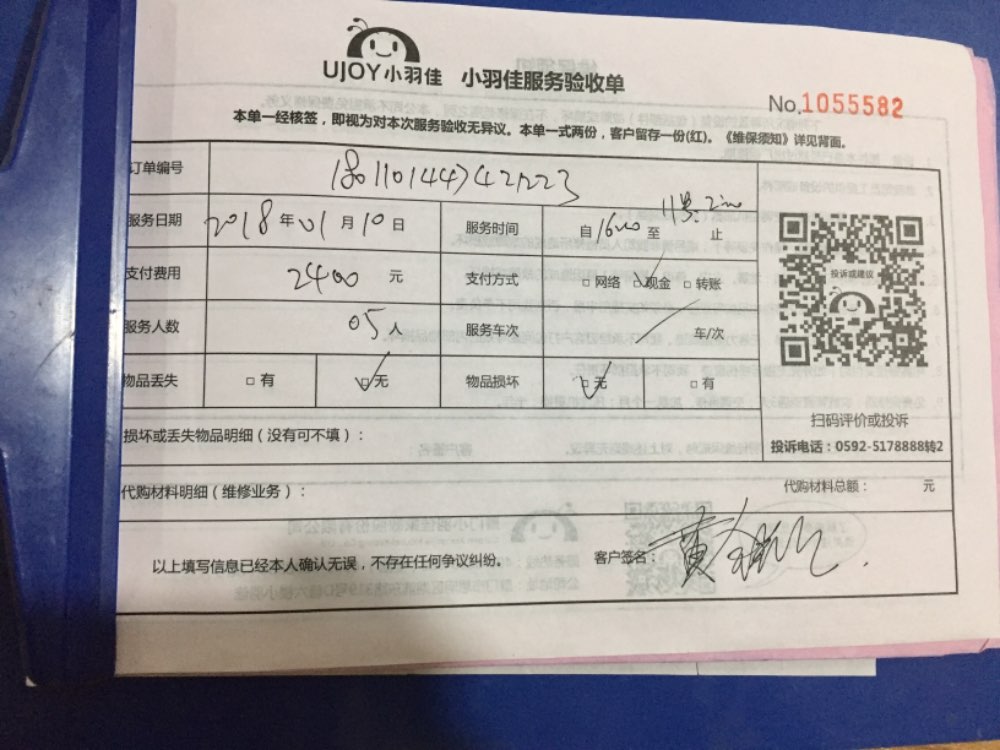 UJOY小羽佳 小羽佳服务验收单
No.1055582
本单一经核签，即视为对本次服务验收无异议。本单一式两份，客户留存一份(红)。《维保须知》详见背面。
订单编号
服务日期 2018年01月10日 服务时间 自 至 止
支付费用 2400 元 支付方式 □网络 □现金 □转账
投诉或建议
服务人数 05人 服务车次 车/次
物品丢失 □有 □无 物品损坏 □无 □有
扫码评价或投诉
损坏或丢失物品明细（没有可不填）：
投诉电话：0592-5178888转2
代购材料明细（维修业务）： 代购材料总额： 元
以上填写信息已经本人确认无误，不存在任何争议纠纷。 客户签名：